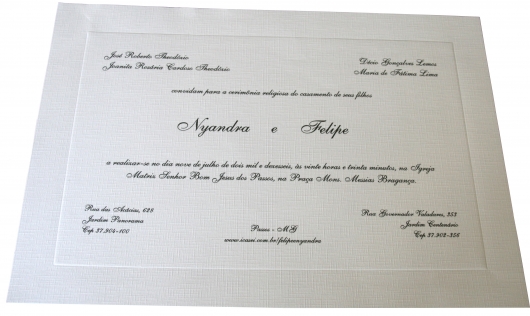 José Roberto Theodózio
Joanita Rosária Cardoso Theodózio
Décio Gonçalves Lemos
Maria de Fátima Lima
convidam para a cerimônia religiosa do casamento de seus filhos
Nyandra e Felipe
a realizar-se no dia nove de julho de dois mil e dezesseis, às vinte horas e trinta minutos, na Igreja
Matriz Senhor Bom Jesus dos Passos, na Praça Mons. Messias Bragança.
Rua das Acácias, 628
Jardim Panorama
Cep 37.904-100
Passos - MG
www.icasei.com.br/felipeenyandra
Rua Governador Valadares, 353
Jardim Centenário
Cep 37.902-356